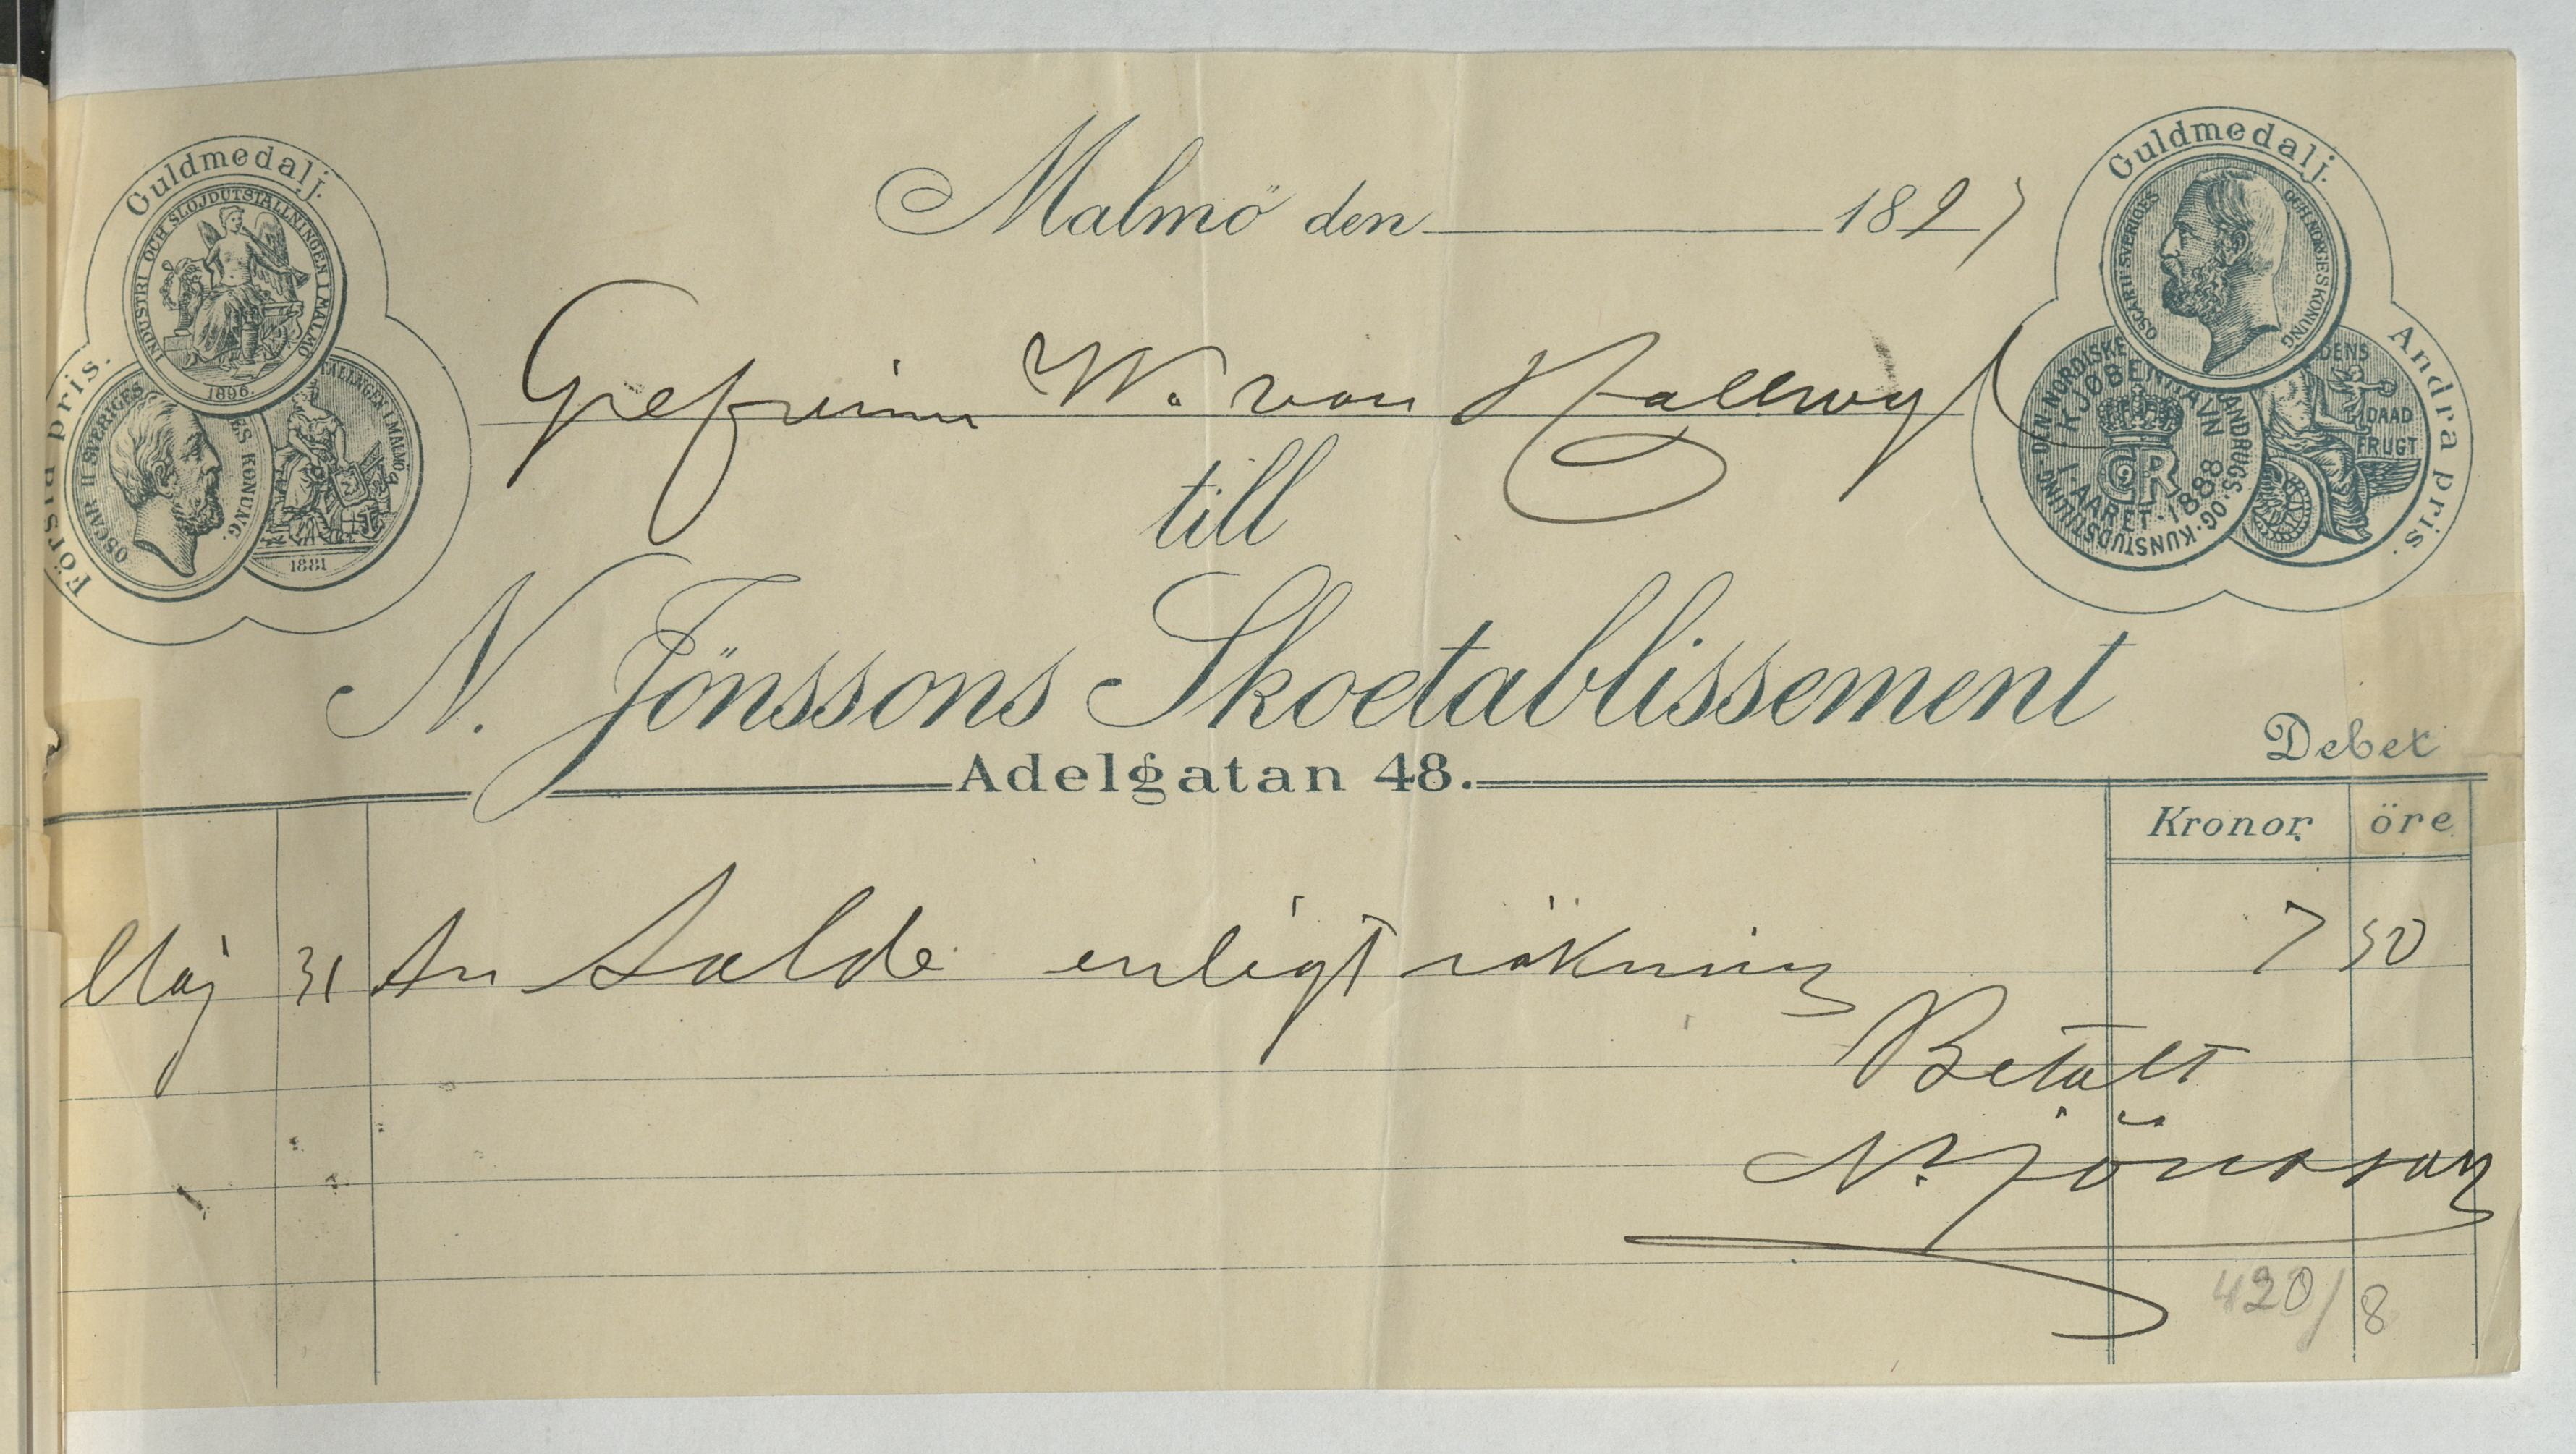 Malmö den 1897
Guldmedalj.
INDUSTRI OCH SLÖJDUTSTÄLLNINGEN I MALMÖ
1896.
Första pris.
OSCAR II SVERIGES
ES KONUNG.
TÄLLNGEN I MALMÖ
1881
Guldmedalj.
OSCAR II SVERIGES OCH NORGES KONUNG
Andra pris.
DEN NORDISKE
LANDBRUGS- OG KUNSTUDSTILLING
I KJØBENHAVN
I AARET 1888
DENS
DAAD
FRUGT
Grefvinnan W. von Hallwyl
till
N. Jönssons Skoetablissement
Adelgatan 48.
Debet
Kronor. öre
Maj 31 An Saldo enligt räkning 7 50
Betalt
N. Jönsson
420/8